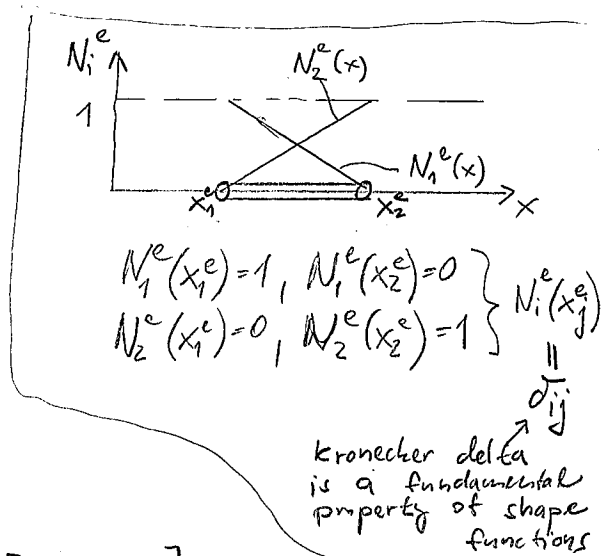 Nᵢᵉ
N₂ᵉ(x)
1
N₁ᵉ(x)
x₁ᵉ x₂ᵉ x
N₁ᵉ(x₁ᵉ)=1, N₁ᵉ(x₂ᵉ)=0
N₂ᵉ(x₁ᵉ)=0, N₂ᵉ(x₂ᵉ)=1 } Nᵢᵉ(xⱼᵉ)
=
δᵢⱼ
Kronecker delta
is a fundamental
property of shape
functions